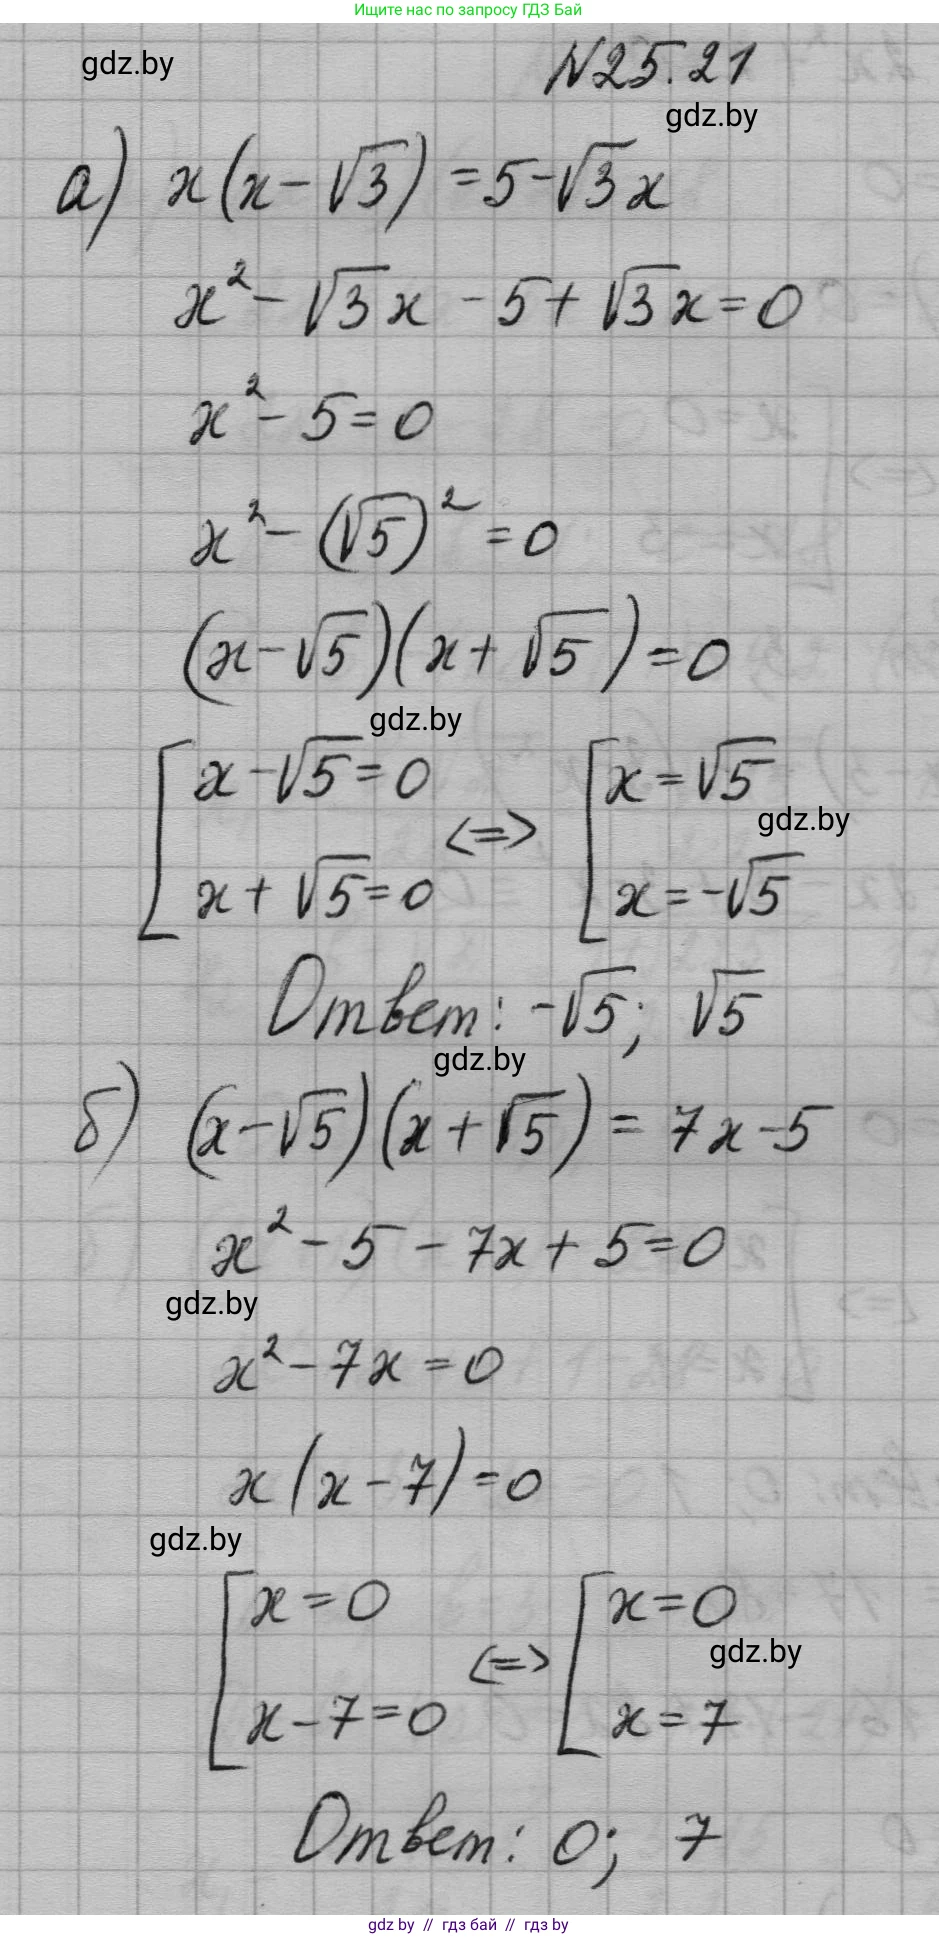 Ищите нас по запросу ГДЗ Бай
gdz.by
N25.21
gdz.by
а) x(x-√3) = 5-√3x
x² - √3x - 5 + √3x = 0
x² - 5 = 0
x² - (√5)² = 0
(x-√5)(x+√5) = 0
gdz.by
[x-√5=0 <=> [x=√5
gdz.by
x+√5=0 x=-√5
Ответ: -√5; √5
gdz.by
б) (x-√5)(x+√5) = 7x-5
x² - 5 - 7x + 5 = 0
gdz.by
x² - 7x = 0
x(x-7) = 0
gdz.by
[x=0 <=> [x=0
gdz.by
x-7=0 x=7
Ответ: 0; 7
gdz by // гдз бай // gdz by